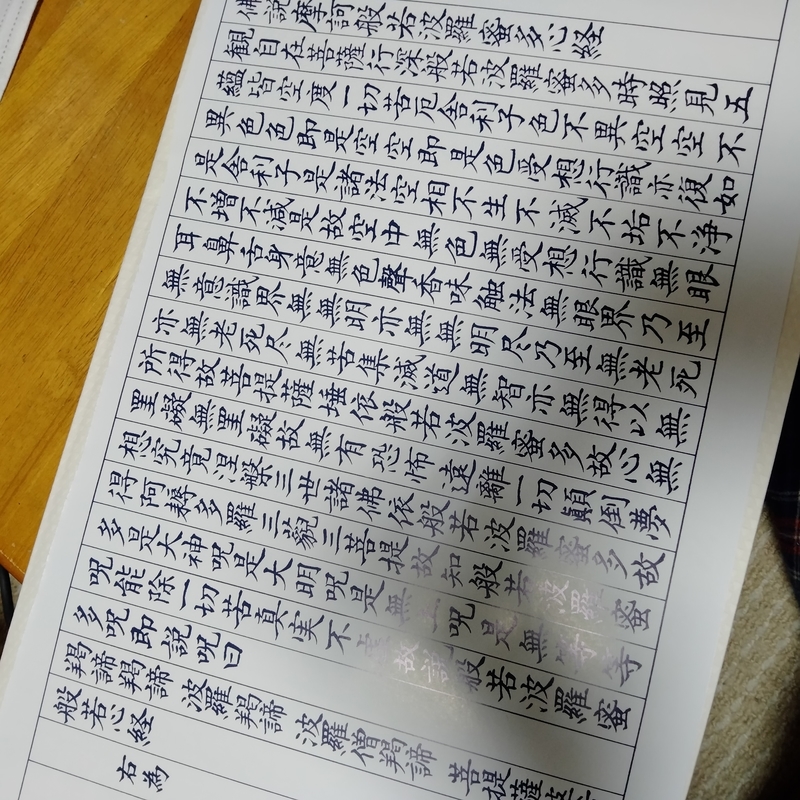 佛説摩訶般若波羅蜜多心経
観自在菩薩行深般若波羅蜜多時照見五
蘊皆空度一切苦厄舎利子色不異空空不
異色色即是空空即是色受想行識亦復如
是舎利子是諸法空相不生不滅不垢不浄
不増不減是故空中無色無受想行識無眼
耳鼻舌身意無色聲香味触法無眼界乃至
無意識界無無明亦無無明尽乃至無老死
亦無老死尽無苦集滅道無智亦無得以無
所得故菩提薩埵依般若波羅蜜多故心無
罣礙無罣礙故無有恐怖遠離一切顛倒夢
想究竟涅槃三世諸佛依般若波羅蜜多故
得阿耨多羅三藐三菩提故知般若波羅蜜
多是大神呪是大明呪是無上呪是無等等
呪能除一切苦真実不虚故説般若波羅蜜
多呪即説呪曰
羯諦羯諦 波羅羯諦 波羅僧羯諦 菩提薩婆
般若心経
右為